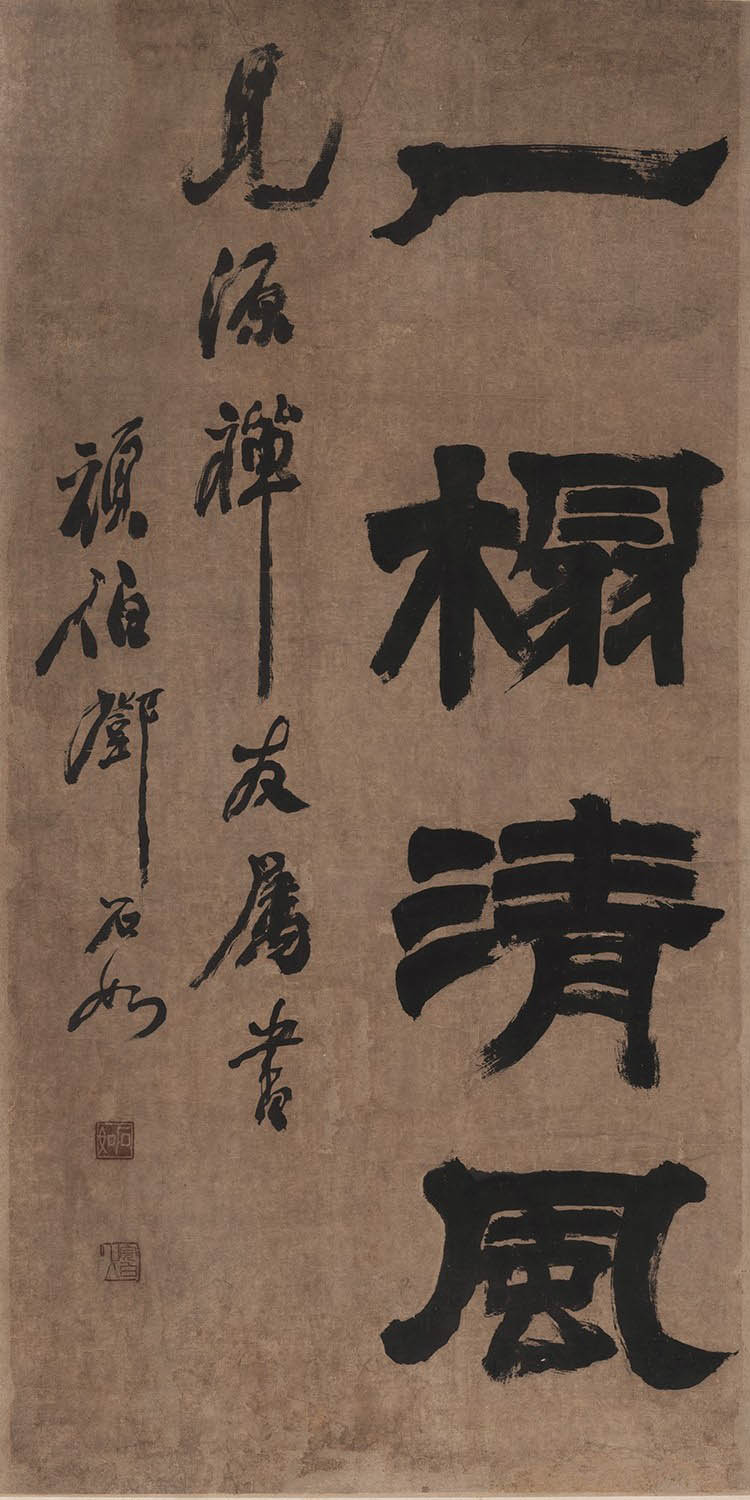 一榻清風
見源禪友屬書
頑伯鄧石如
石如